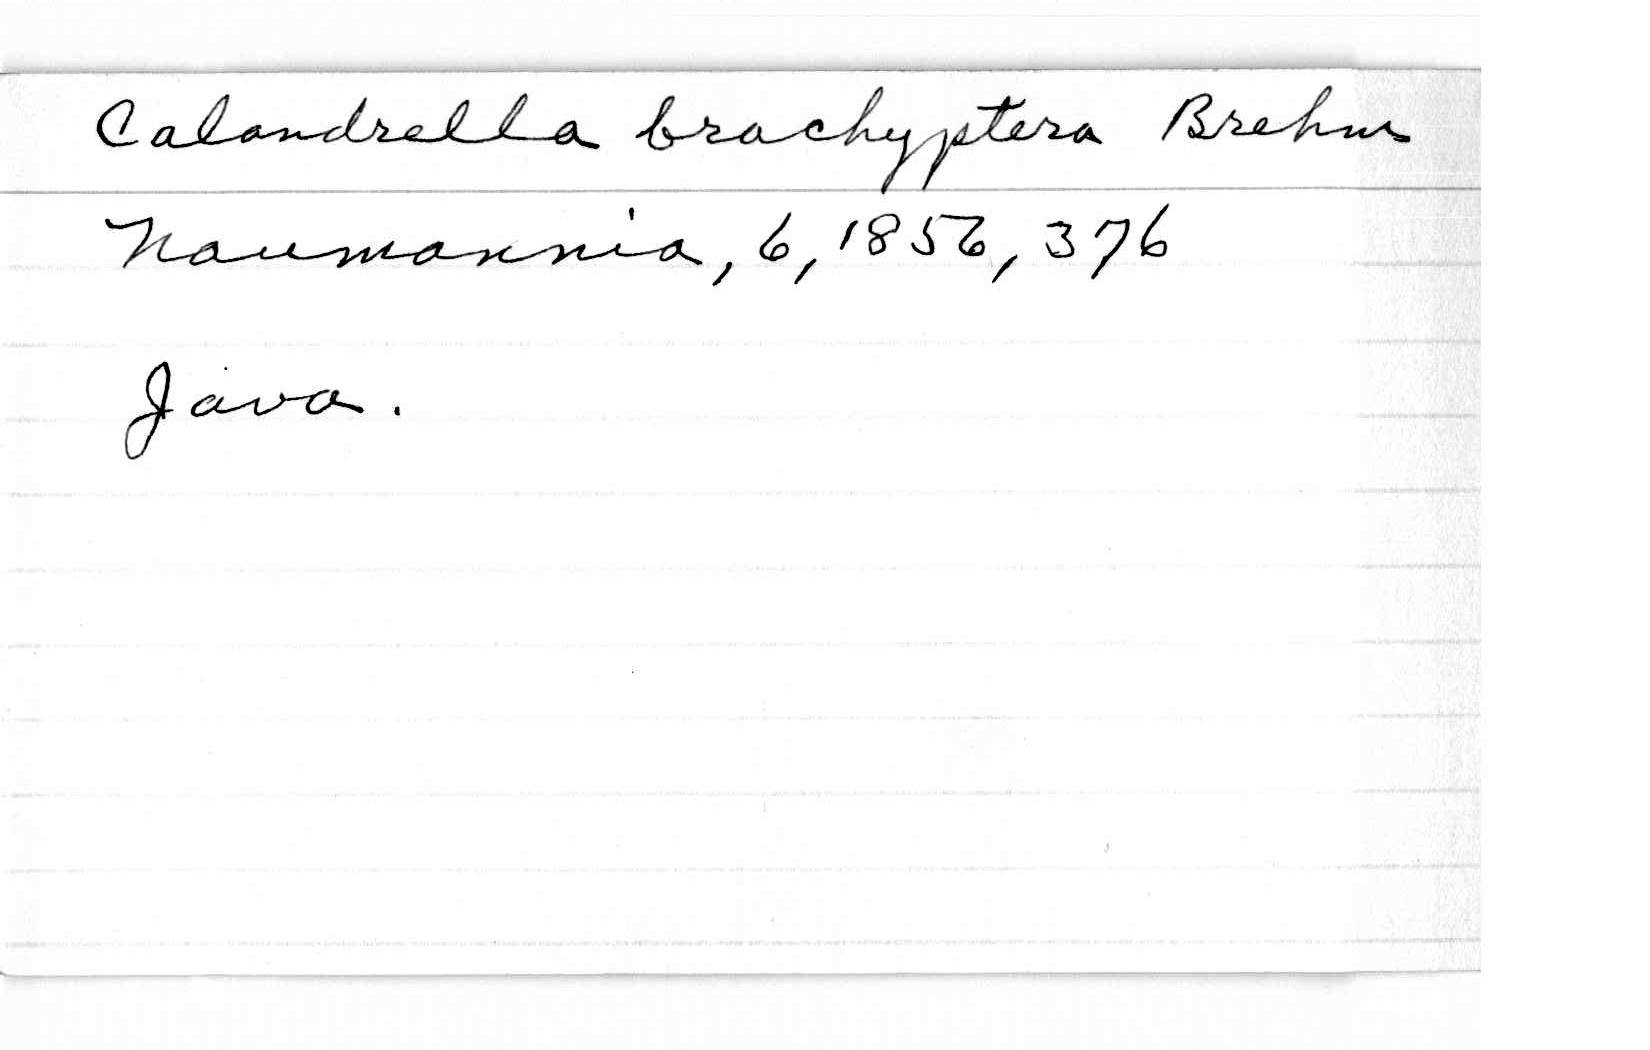 Calandrella brachyptera Brehm
Naumannia, 6, 1856, 376
Java.